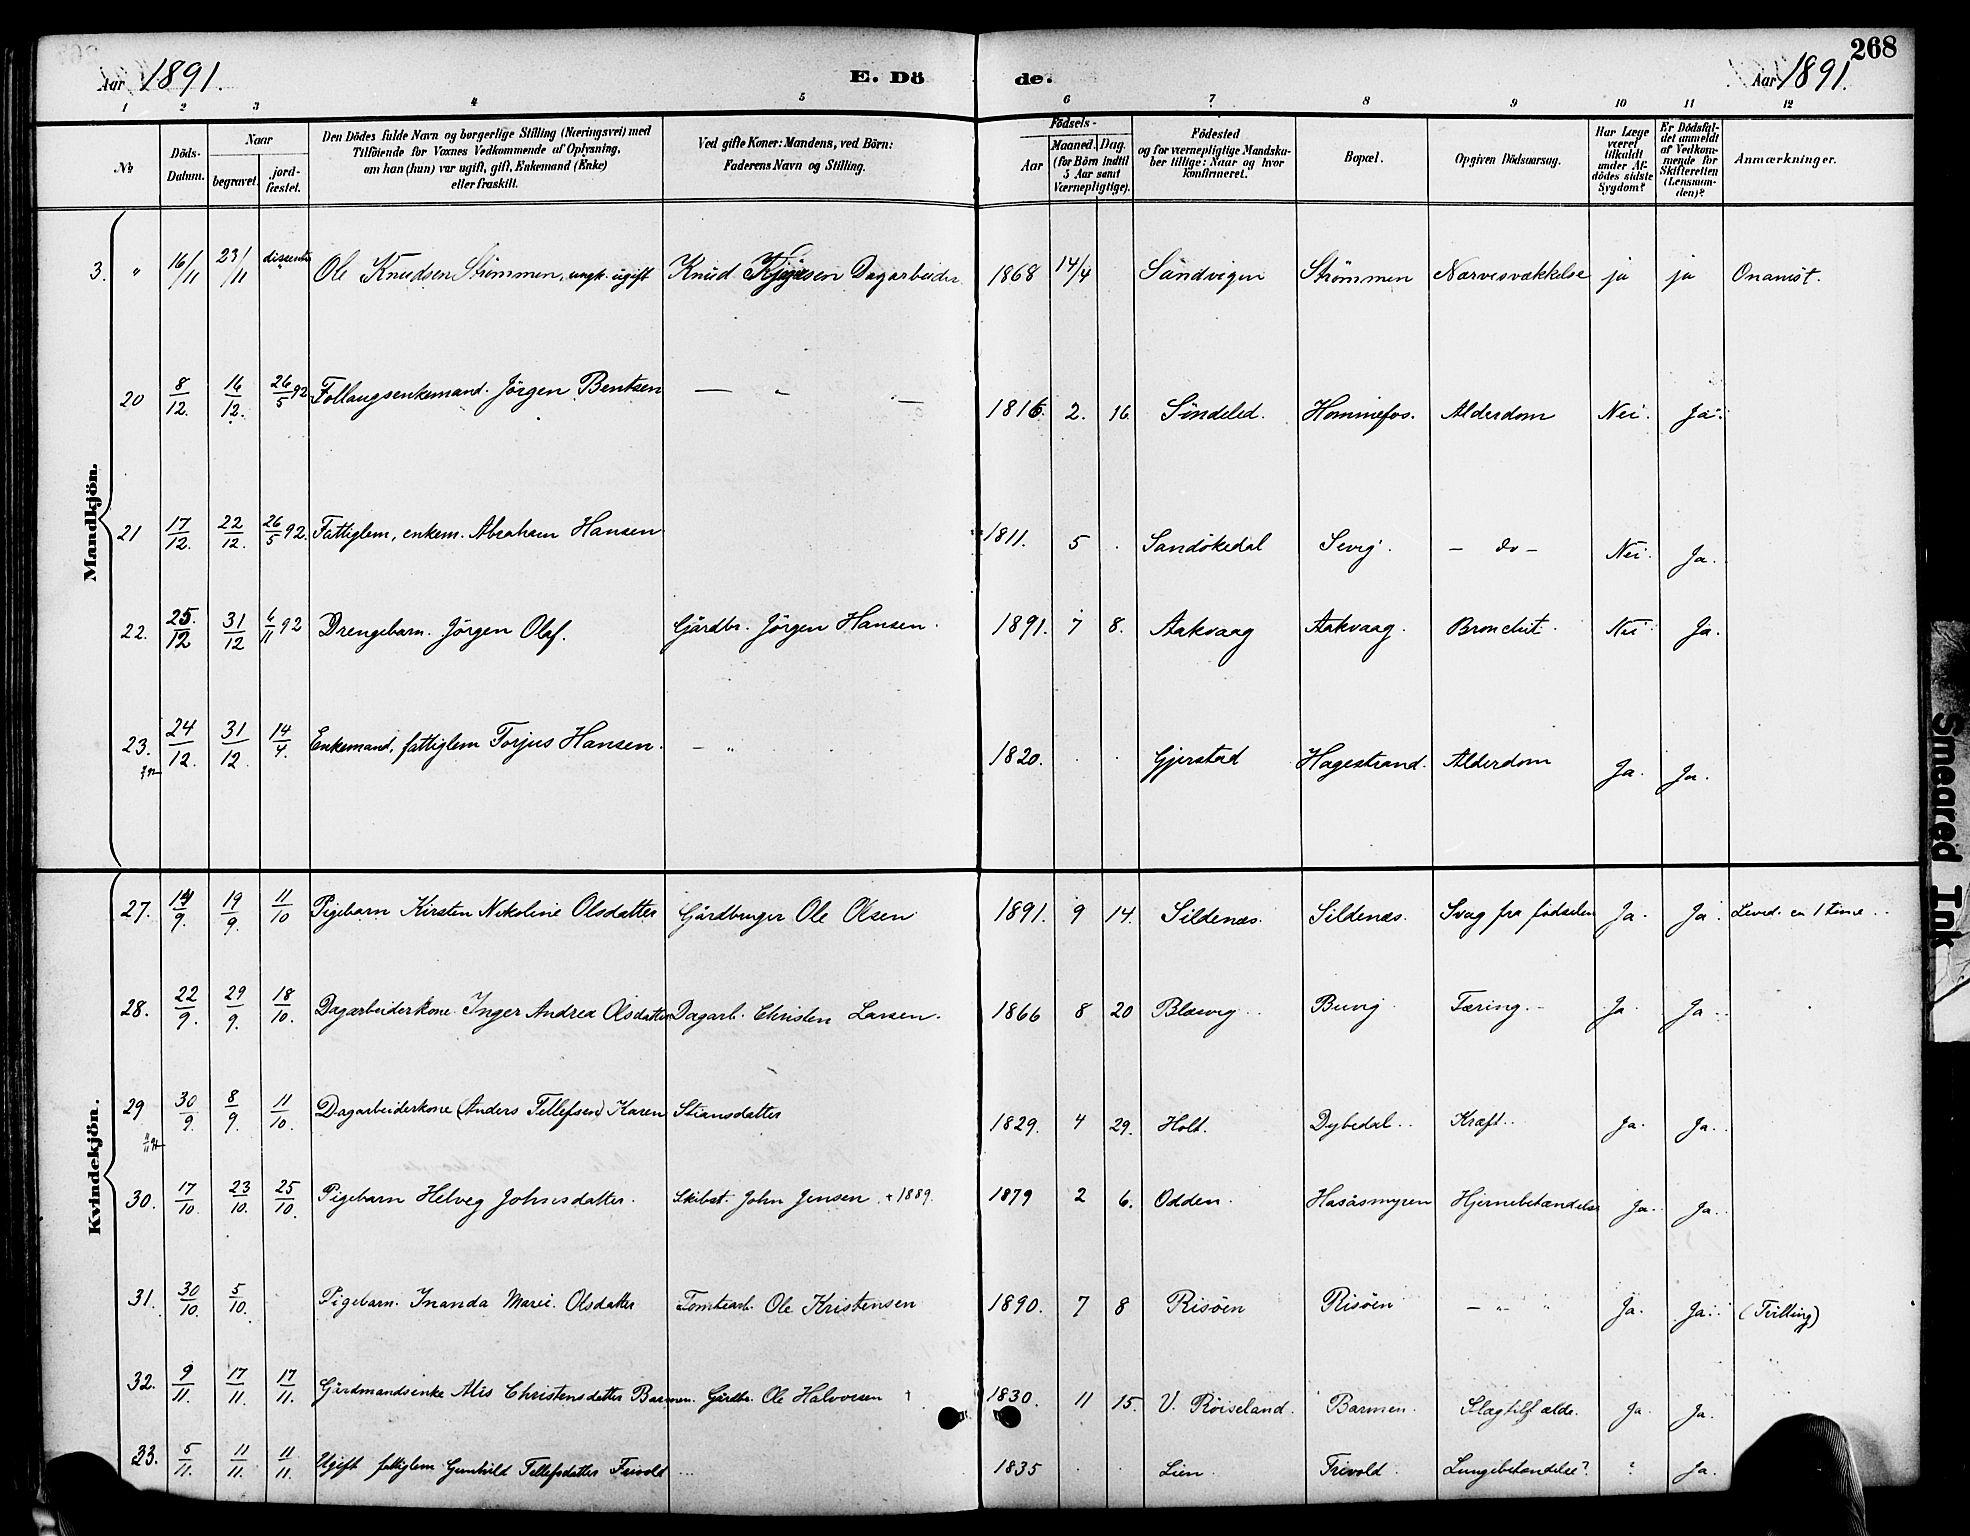 268
Aar 1891. E. Dö de. Aar 1891.
1 2 3 4 5 6 7 8 9 10 11 12
No
Döds-Datum.
Naar begravet. jordfæstet.
Den Dödes fulde Navn og borgerlige Stilling (Næringsvei) med
Tilföiende for Voxnes Vedkommende af Oplysning,
om han (hun) var ugift, gift, Enkemand (Enke)
eller fraskilt.
Ved gifte Koner: Mandens, ved Börn:
Faderens Navn og Stilling.
Födsels-
Aar Maaned. Dag.
(for Börn indtil 5 Aar samt Værnepligtige).
Födested
og for værnepligtige Mandskaber tillige: Naar og hvor konfirmeret.
Bopæl.
Opgiven Dödsaarsag.
Har Læge været tilkaldt under Afdödes sidste Sygdom?
Er Dödsfaldet anmeldt af Vedkommende for Skifteretten (Lensmanden)?
Anmærkninger.
Mandkjön.
3. " 16/11 23/11 dissenter Ole Knudsen Strømmen, ungk. ugift Knud Dagarbeider 1868 14/4 Sandvigen Strømmen Nærvesvækkelse ja ja Onanist.
20 8/12. 16/12. 26/5 92 Follaugsenkemand. Jörgen Bentsen — " — 1816. 2. 16. Söndeled. Hommefos. Alderdom Nei. Ja.
21 17/12. 22/12. 26/5 92. Fattiglem, enkem. Abraham Hansen 1811. 5 . Sandökedal Sevig. – do – Nei. Ja.
22. 25./12 31/12 6/11 92 Drengebarn. Jörgen Olaf. Gårdbr. Jörgen Hansen. 1891. 7 8. Aakvaag Aakvaag. Bronchit. Nei Ja.
23. 24/12. 31/12. 14/4. Enkemand, fattiglem Torjus Hansen. – " 1820. . . Gjerstad Hagestrand. Alderdom Ja. Ja.
Kvindekjön.
27. 14/9. 19/9. 11/10 Pigebarn Kirsten Nikoline Olsdatter Gårdbruger Ole Olsen 1891. 9 14. Sildenæs. Sildenæs. Svag fra fødselen Ja. Ja. Leved. en 1 time..
28. 22/9. 29/9. 18/10. Dagarbeiderkone. Inger Andrea Olsdatter Dagarb. Christen Larsen. 1866 8 20 Blæsvig.. Buvig Tæring. – Ja. Ja..
29 30/9. 8/9. 11/10. Dagarbeiderkone (Anders Tellefsen) Karen Stiansdatter 1829. 4 29. Holt. Dybedal.. Kræft.. Ja. Ja..
30. 17/10. 23/10. 25/10. Pigebarn Helveg Johnsdatter. Skibst. John Jensen. + 1889. 1879 2 6. Odden. Hasåsmyren Hjernebetændelse Ja. Ja.
31. 30/10. 5/10. Pigebarn. Inanda Marie. Olsdatter Tomtearb. Ole Kristensen 1890. 7 8 Risöen Risöen – " " Ja. Ja. (Tvilling)
32. 9/11. 17/11. 17/11. Gårdmandsenke Alis Christensdatter Barmen. Gårdbr. Ole Halvorsen + 1830. 11 15. V. Röiseland. Barmen. Slagtilfælde. Ja. Ja.
33. 5/11. 11/11. 11/11. Ugift fattiglem Gunhild Tellefsdatter Trevold ... 1835 . Lien. Trevold. Lungebetændelse? ? Ja.
Smeared Ink